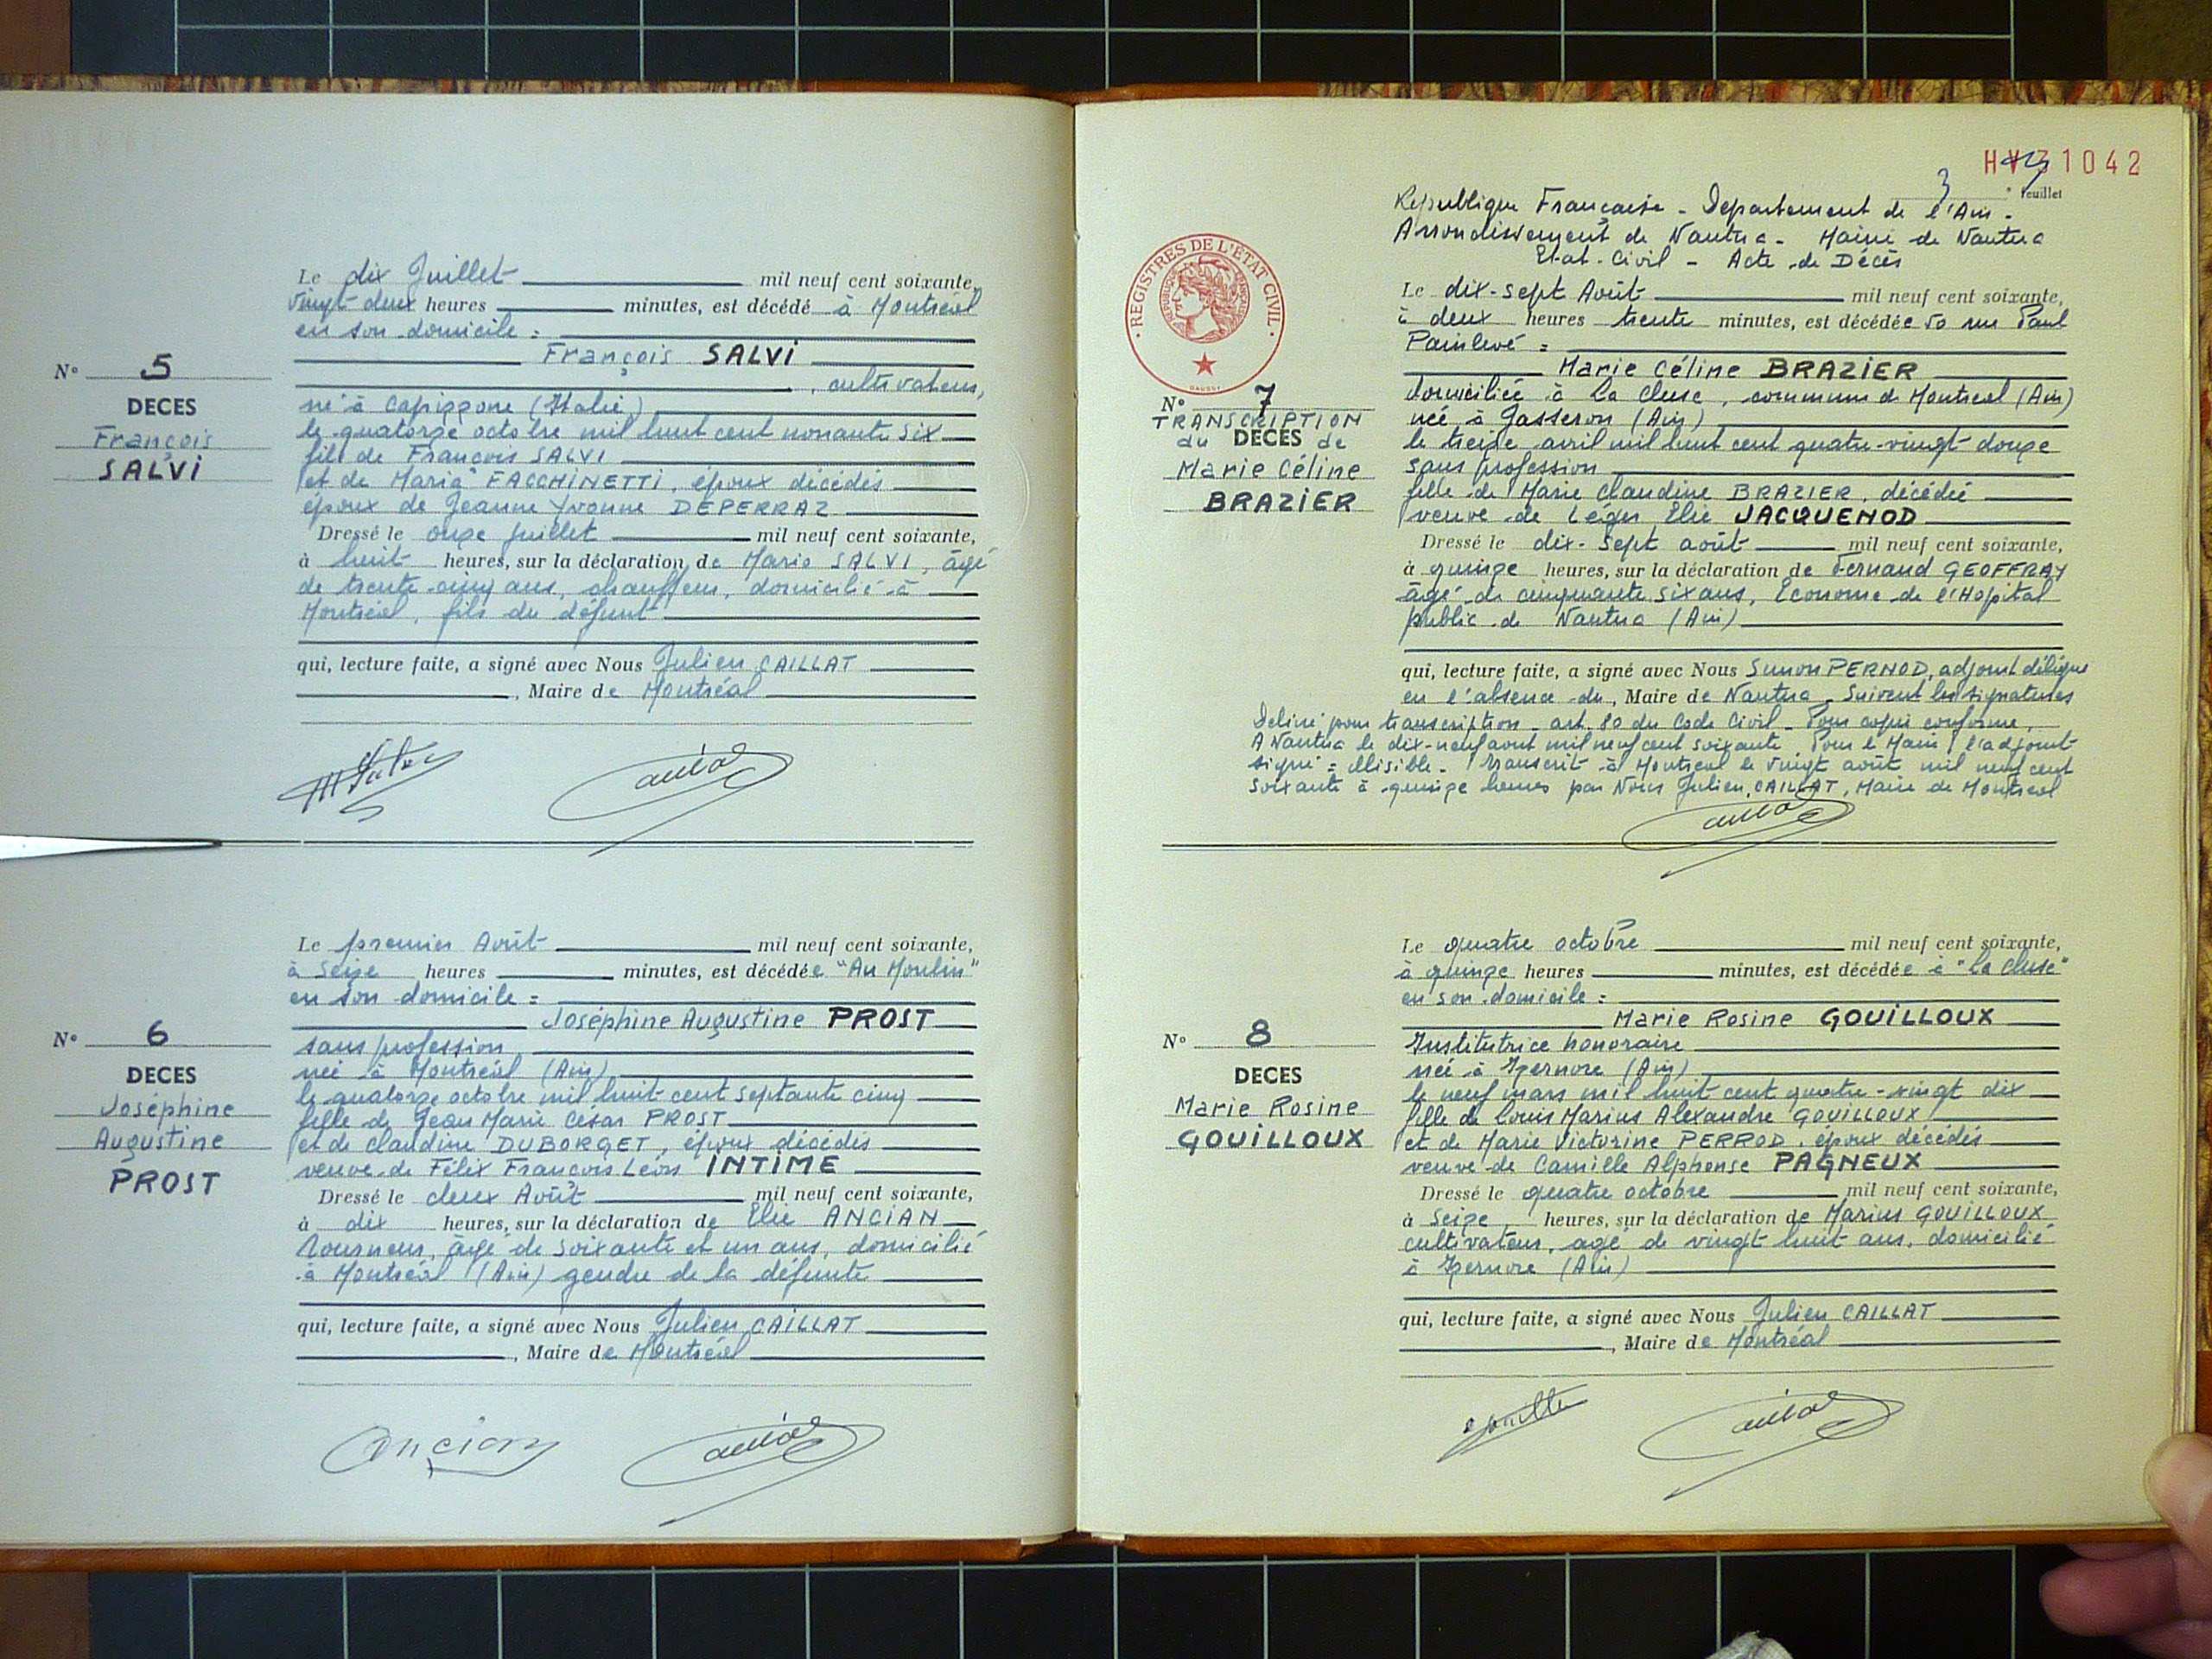 Le dix Juillet mil neuf cent soixante,
vingt-deux heures minutes, est décédé à Montréal
en son domicile :
François SALVI
, cultivateur,
né à Capizzone (Italie)
le quatorze octobre mil huit cent nonante six
fils de François SALVI
et de Maria FACCHINETTI, époux décédés
époux de Jeanne Yvonne DEPERRAZ
Dressé le onze Juillet mil neuf cent soixante,
à huit heures, sur la déclaration de Mario SALVI, âgé
de trente cinq ans, chauffeur, domicilié à
Montréal, fils du défunt
qui, lecture faite, a signé avec Nous Julien CAILLAT
, Maire de Montréal
N° 5
DECES
François
SALVI
Le premier Août mil neuf cent soixante,
à seize heures minutes, est décédée "Au Moulin"
en son domicile :
Joséphine Augustine PROST
sans profession
née à Montréal (Ain)
le quatorze octobre mil huit cent septante cinq
fille de Jean Marie César PROST
et de Claudine DUBORGET, époux décédés
veuve de Félix François Léon INTIME
Dressé le deux Août mil neuf cent soixante,
à dix heures, sur la déclaration de Elie ANCIAN
tourneur, âgé de soixante et un ans, domicilié
à Montréal (Ain) gendre de la défunte
qui, lecture faite, a signé avec Nous Julien CAILLAT
, Maire de Montréal
Ancian
N° 6
DECES
Joséphine
Augustine
PROST
31042
3 feuillet
République Française - Département de l'Ain -
Arrondissement de Nantua - Mairie de Nantua
Etat-Civil - Acte de Décès
REGISTRES DE L'ETAT CIVIL
Le dix-sept Août mil neuf cent soixante,
à deux heures trente minutes, est décédée 50 rue Paul
Painlevé :
Marie Céline BRAZIER
domiciliée à La Cluse, commune de Montréal (Ain)
née à Jasseron (Ain)
le treize avril mil huit cent quatre-vingt douze
sans profession
fille de Marie Claudine BRAZIER, décédée
veuve de Léger Elie JACQUENOD
Dressé le dix-sept août mil neuf cent soixante,
à quinze heures, sur la déclaration de Fernand GEOFFRAY
âgé de cinquante six ans, Econome de l'Hopital
public de Nantua (Ain)
qui, lecture faite, a signé avec Nous Simon PERNOD, adjoint délégué
en l'absence du, Maire de Nantua - Suivent les signatures
Délivré pour transcription - art. 80 du Code Civil - Pour copie conforme,
A Nantua le dix-neuf aout mil neuf cent soixante. Pour le Maire, l'adjoint
signé = illisible - Transcrit à Montréal le vingt août mil neuf cent
soixante à quinze heures par Nous Julien, CAILLAT, Maire de Montréal
N° 7
TRANSCRIPTION
du DECES de
Marie Céline
BRAZIER
Le quatre octobre mil neuf cent soixante,
à quinze heures minutes, est décédée à "La Cluse"
en son domicile :
Marie Rosine GOUILLOUX
Institutrice honoraire
née à Izernore (Ain)
le neuf mars mil huit cent quatre-vingt dix
fille de Louis Marius Alexandre GOUILLOUX
et de Marie Victorine PERROD, époux décédés
veuve de Camille Alphonse PAGNEUX
Dressé le quatre octobre mil neuf cent soixante,
à seize heures, sur la déclaration de Marius GOUILLOUX
cultivateur, agé de vingt huit ans, domicilié
à Izernore (Ain)
qui, lecture faite, a signé avec Nous Julien CAILLAT
, Maire de Montréal
N° 8
DECES
Marie Rosine
GOUILLOUX